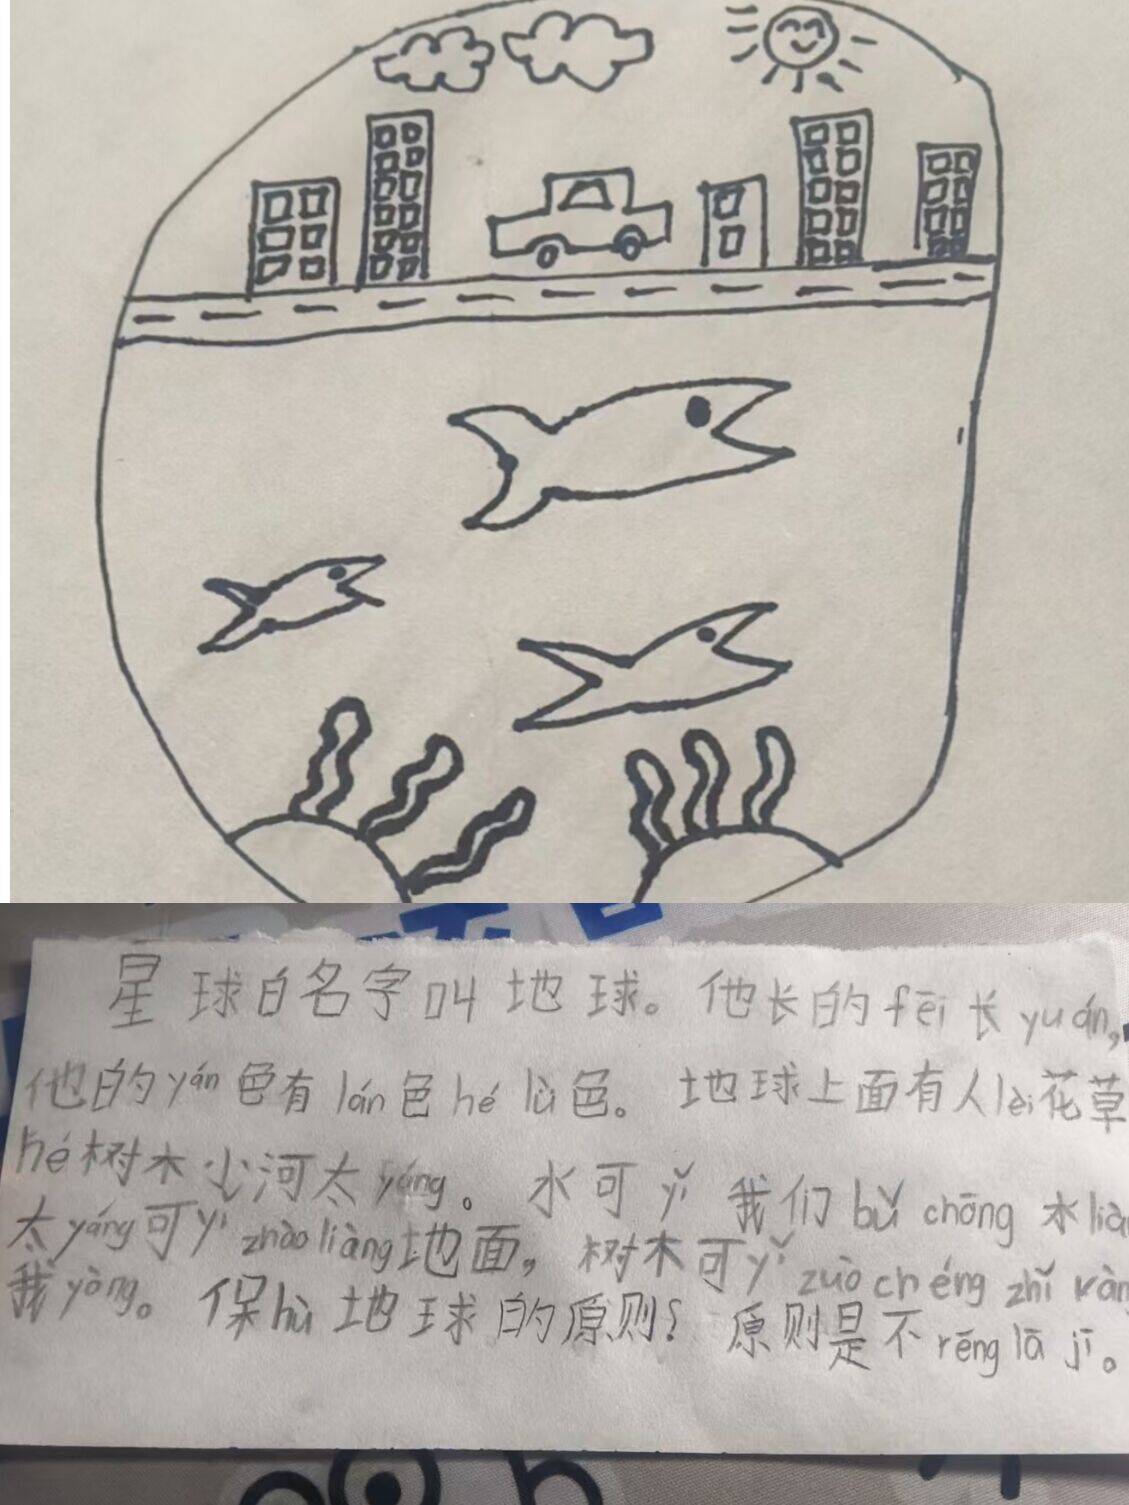 星球白名字叫地球。他长的fēi长yuán，
他的yán色有lán色hé lǜ色。地球上面有人lèi花草
hé树木小河太yáng。水可yǐ我们bǔ chōng水
太yáng可yǐ zhào liàng地面，树木可yǐ zuò chéng zhǐ
我yòng。保hù地球的原则？原则是不rēng lā jī。